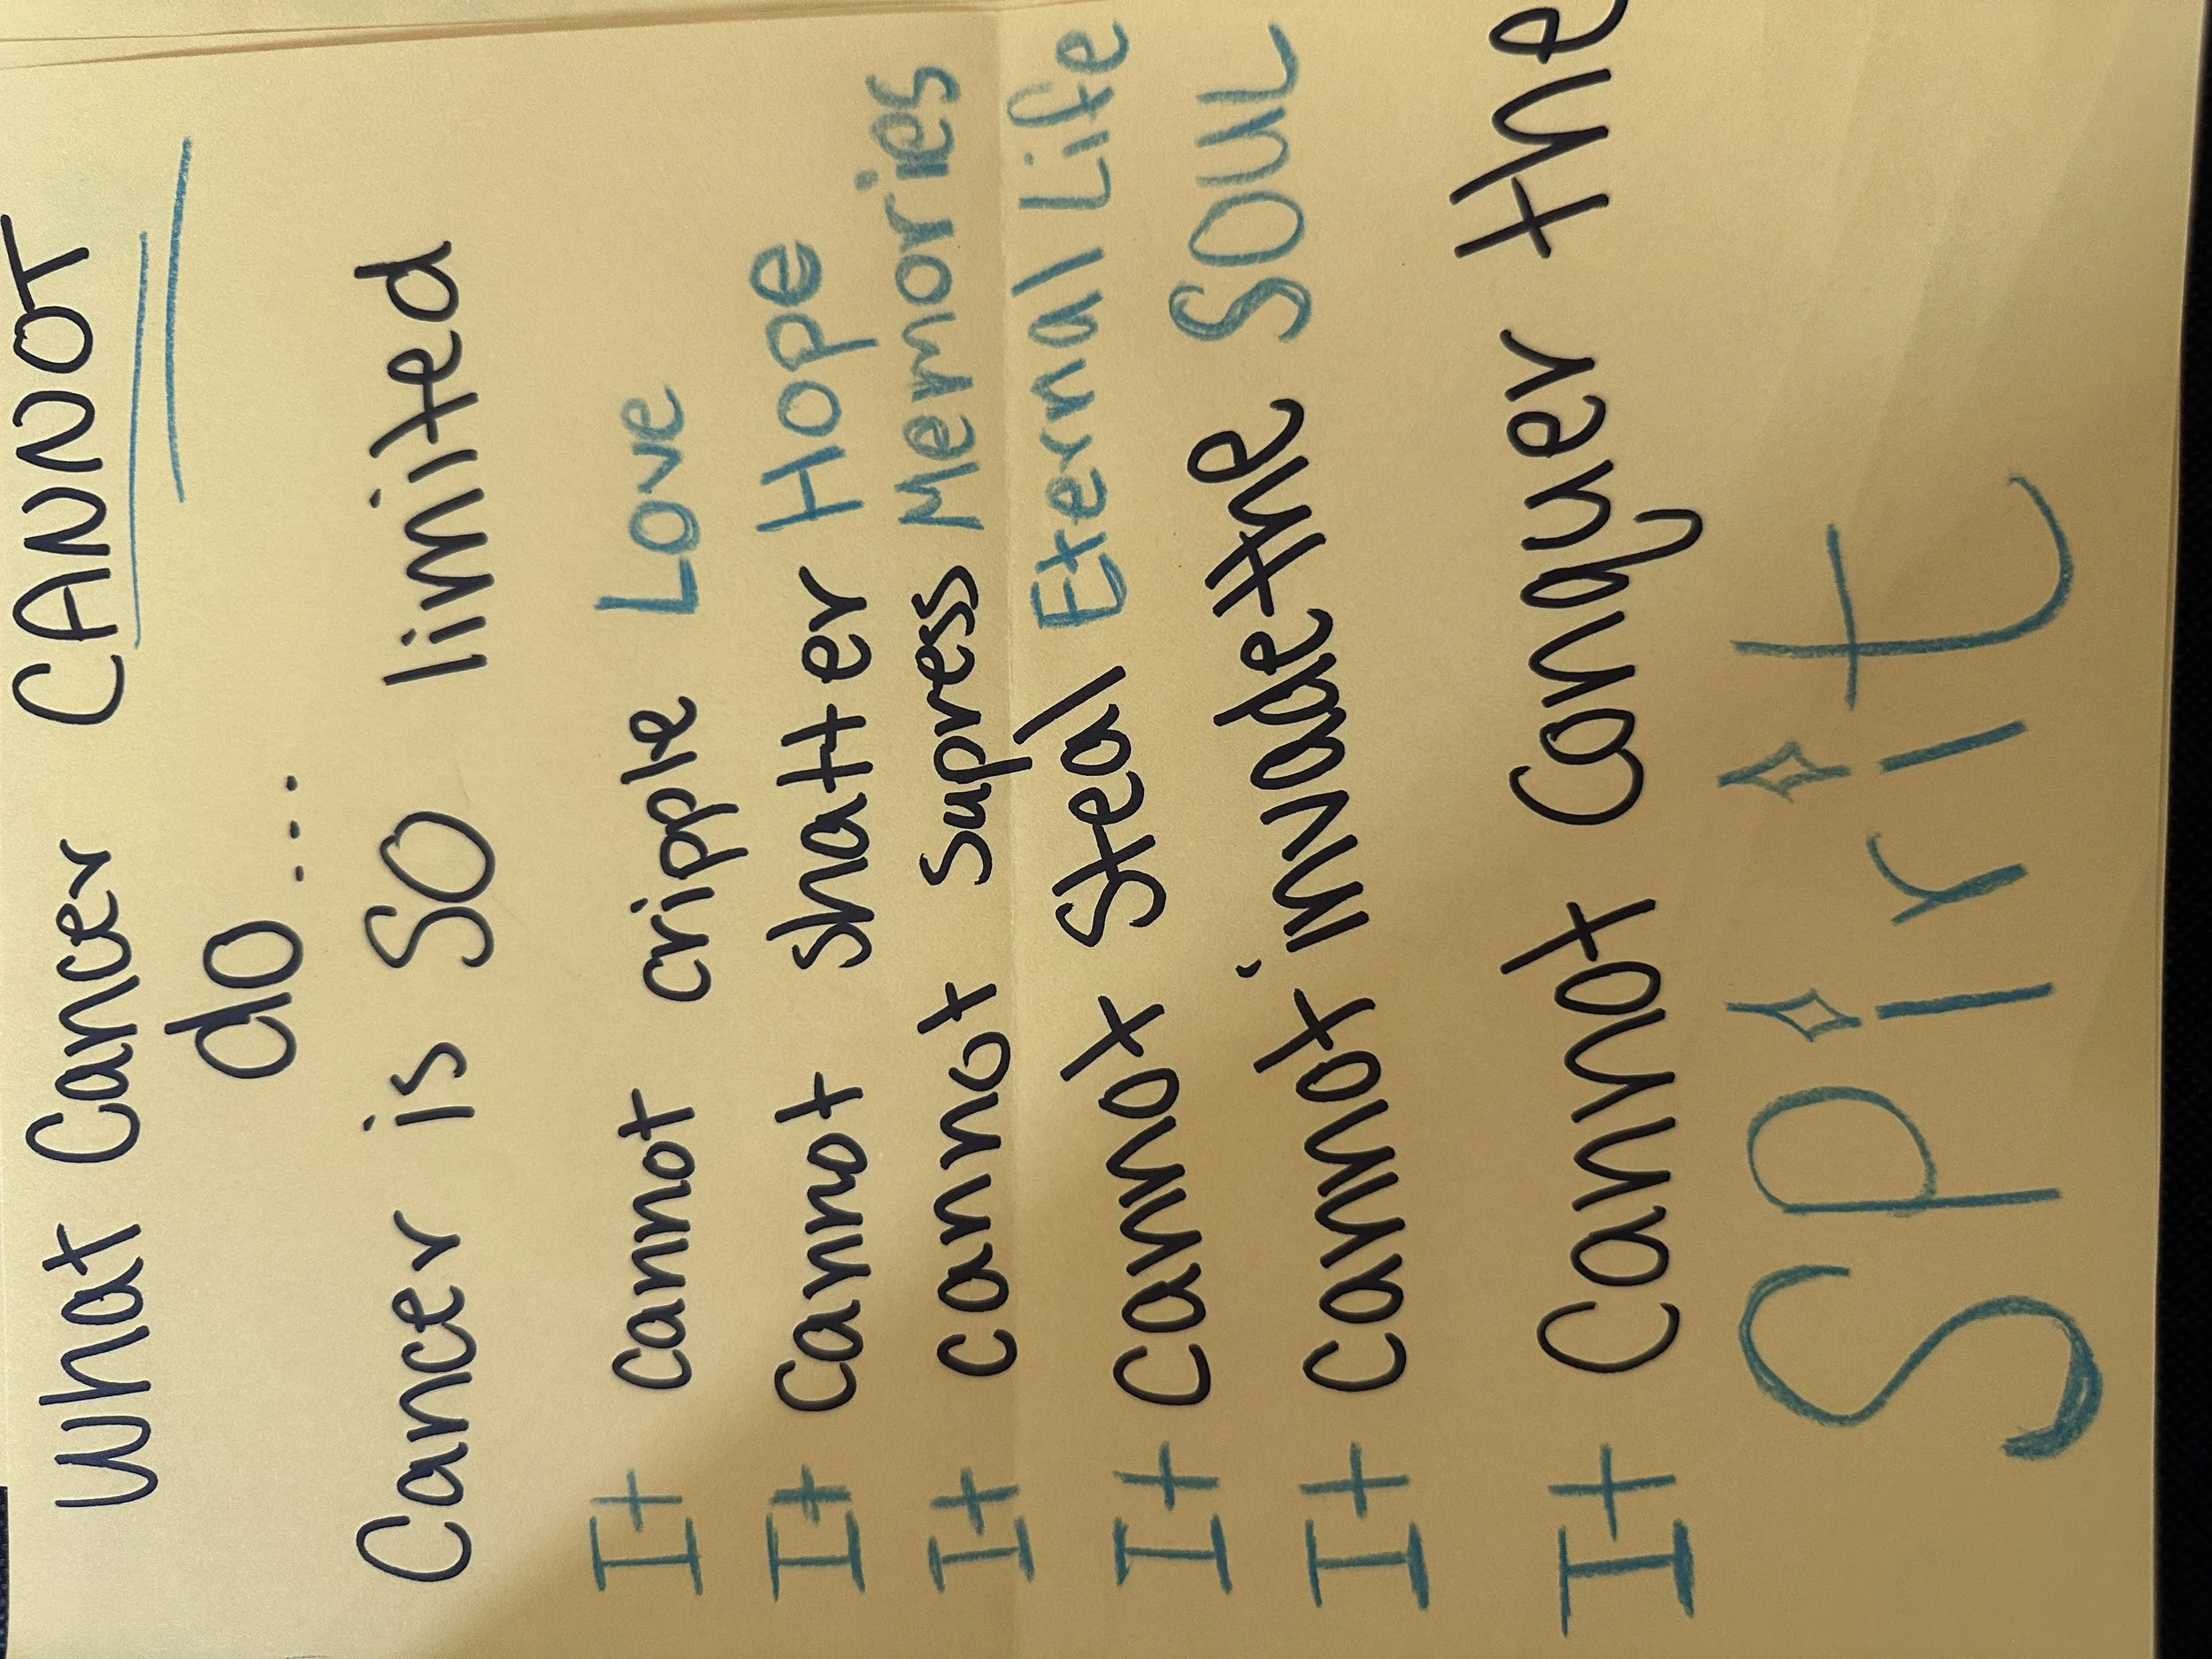 What Cancer CANNOT
do...
Cancer is SO limited
It cannot cripple Love
It cannot shatter Hope
It cannot supress Memories
It cannot steal Eternal Life
It cannot invade the SOUL
It cannot conquer the
Spirit